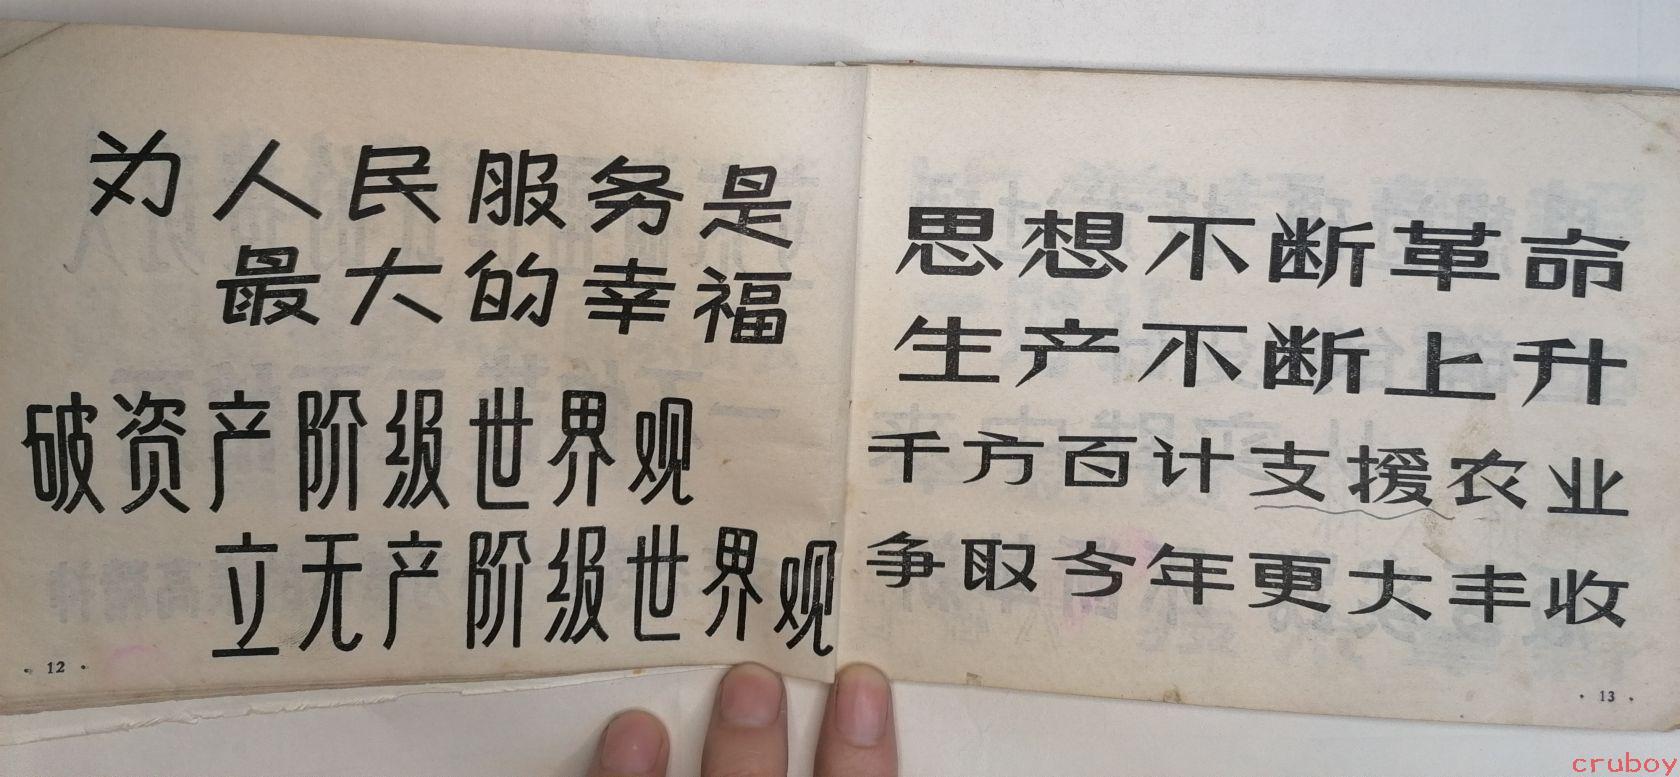 为人民服务是
最大的幸福
破资产阶级世界观
立无产阶级世界观
· 12 ·
思想不断革命
生产不断上升
千方百计支援农业
争取今年更大丰收
· 13 ·
cruboy